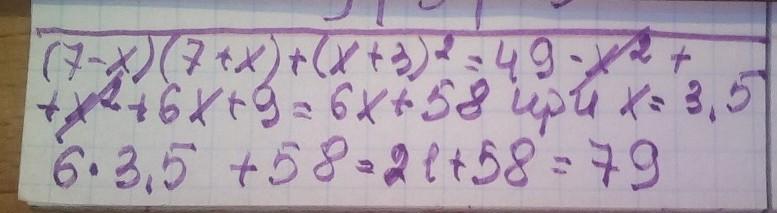 (7-x)(7+x)+(x+3)²=49-x²+
+x²+6x+9=6x+58 при x=3,5
6·3,5 +58=21+58=79